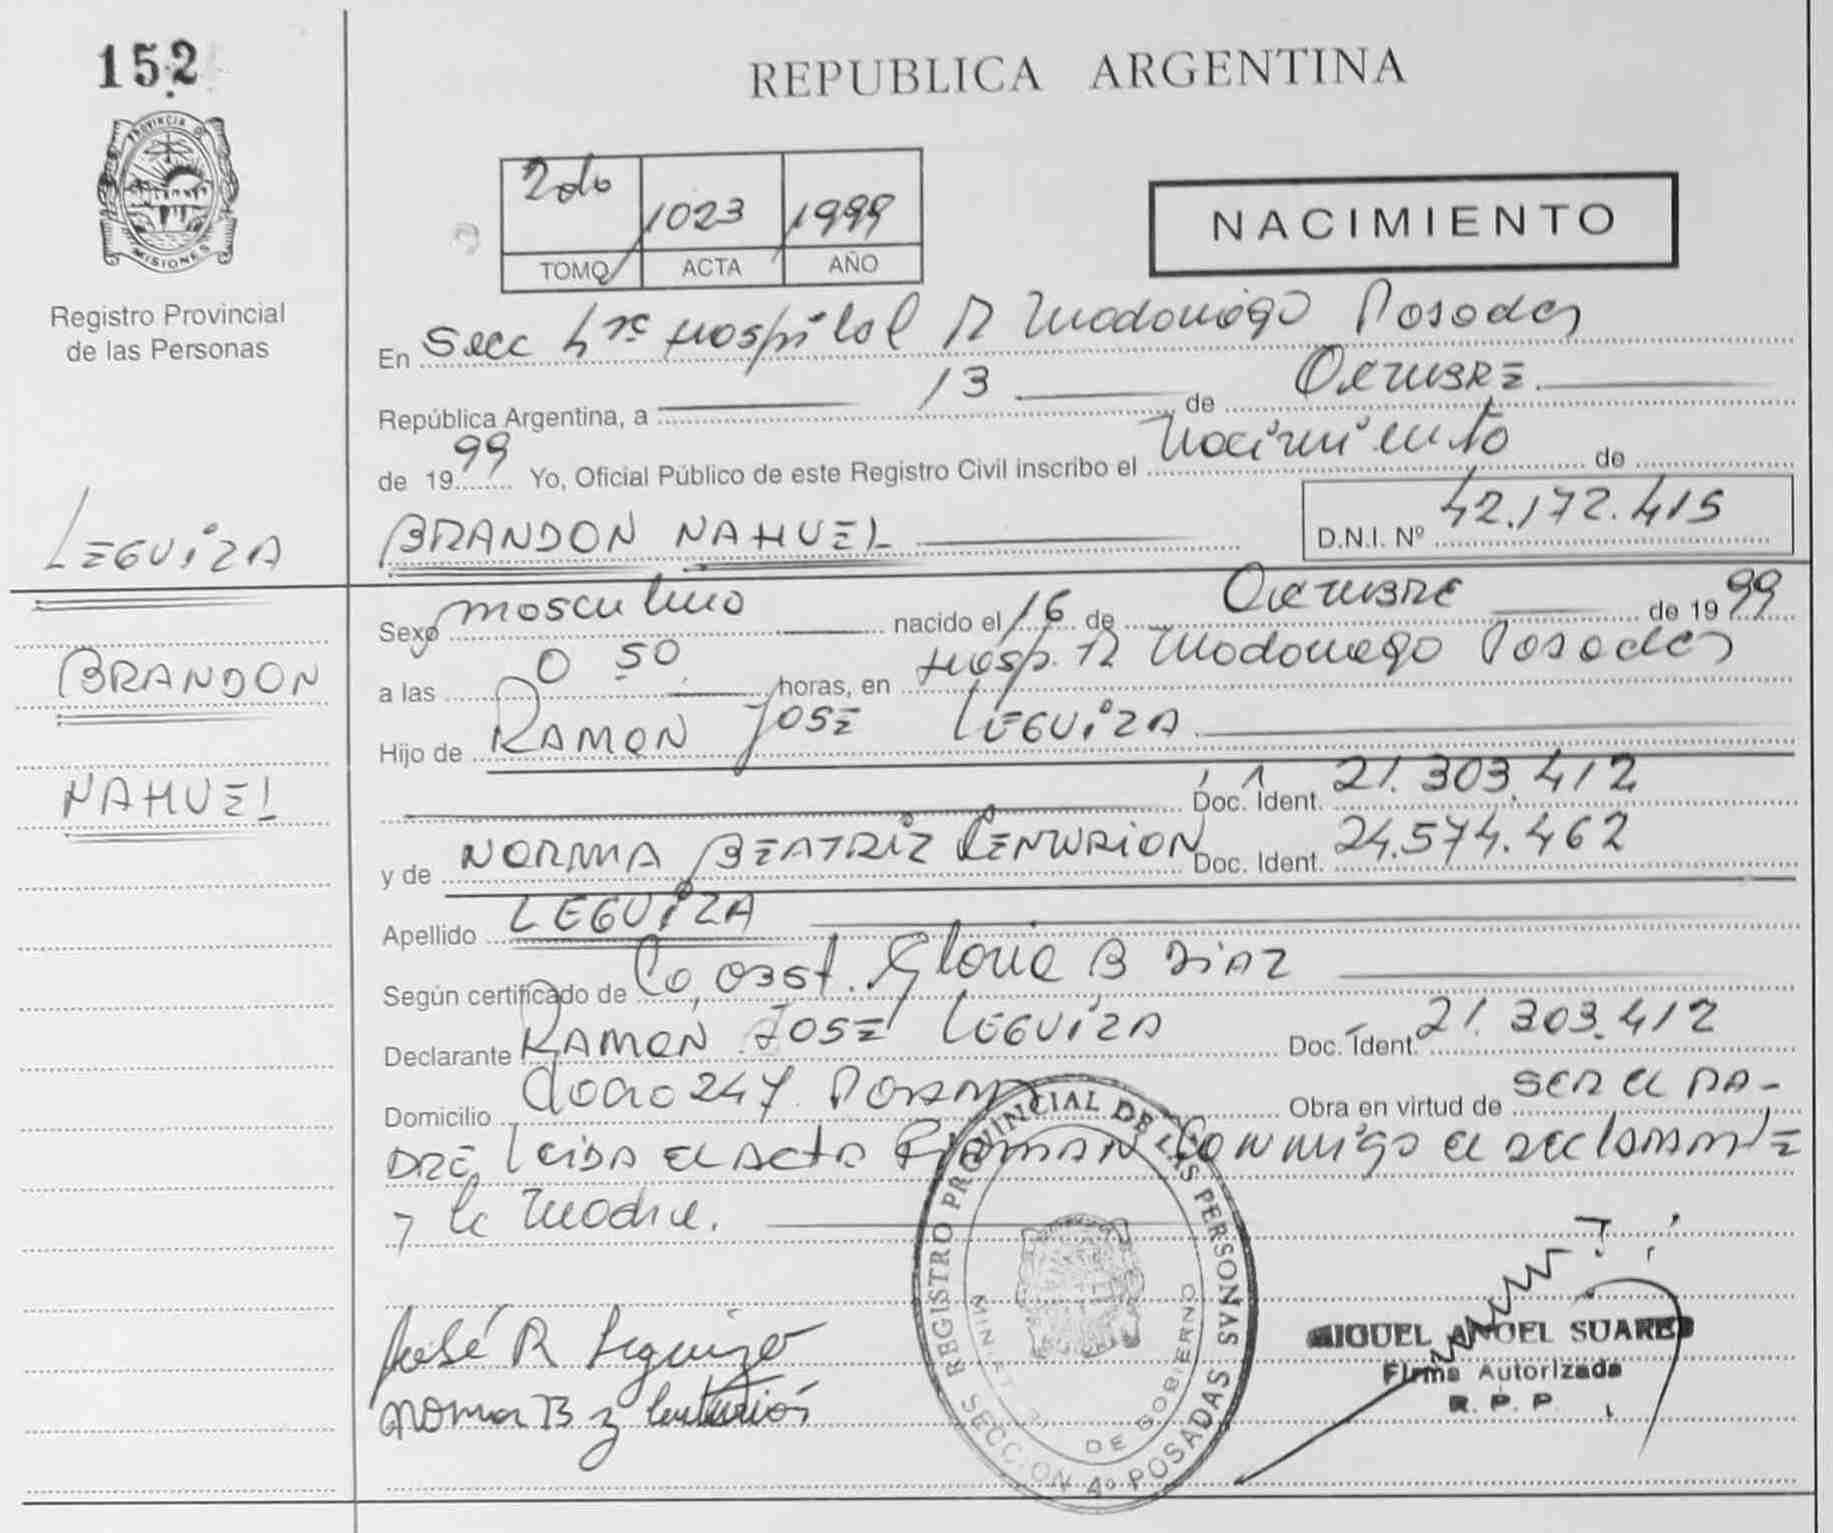 152
PROVINCIA DE
MISIONES
Registro Provincial
de las Personas
LEGUIZA
BRANDON
NAHUEL
REPUBLICA ARGENTINA
2do 1023 1999
TOMO ACTA AÑO
NACIMIENTO
En Secc 4ta Hospital R Madariaga Posadas
República Argentina, a 13 de OCTUBRE
de 1999 Yo, Oficial Público de este Registro Civil inscribo el Nacimiento de
BRANDON NAHUEL D.N.I. Nº 42.172.415
Sexo masculino nacido el 16 de OCTUBRE de 1999
a las 0 50 horas, en Hosp. R Madariaga Posadas
Hijo de RAMON JOSE LEGUIZA
Doc. Ident. 21.303.412
y de NORMA BEATRIZ CENTURION Doc. Ident. 24.574.462
Apellido LEGUIZA
Según certificado de Obst. Gloria B DIAZ
Declarante RAMON JOSE LEGUIZA Doc. Ident. 21.303.412
Domicilio 247 Obra en virtud de SER EL PA-
DRE leida EL Acta FIRMAN CONmigo el declarante
y la madre.
José R Leguiza
Norma B Z Centurión
REGISTRO PROVINCIAL DE LAS PERSONAS
SECCION 4º POSADAS
DE GOBIERNO
MIGUEL ANGEL SUAREZ
Firma Autorizada
R. P. P.